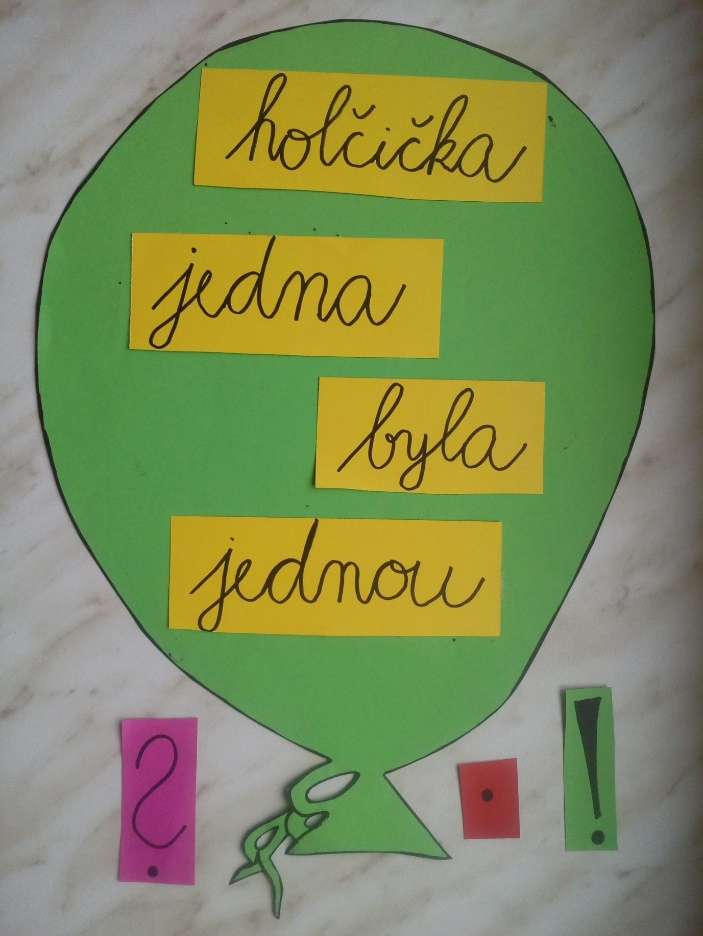 holčička
jedna
byla
jednou
? . !